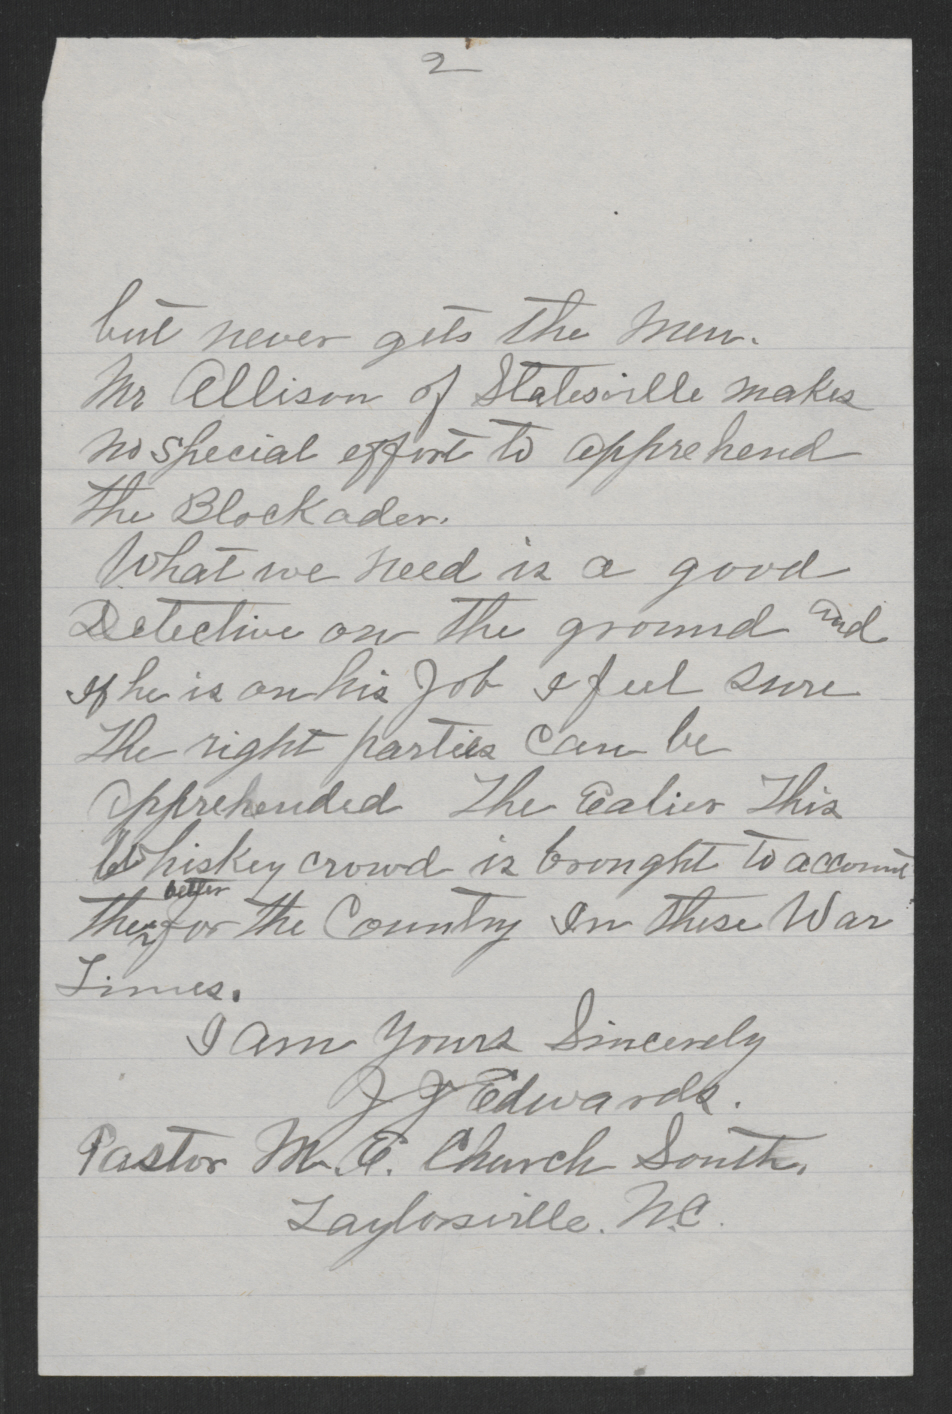 2
but never gets the men.
Mr Allison of Statesville makes
no special effort to apprehend
the Blockader.
What we need is a good
Detective on the ground and
If he is on his Job I feel sure
The right parties can be
apprehended The Ealier This
Whiskey crowd is brought to account
better
the for the Country In these War
Times.
I am Yours Sincerely
J J Edwards.
Pastor M. E. Church South.
Taylorsville. N.C.